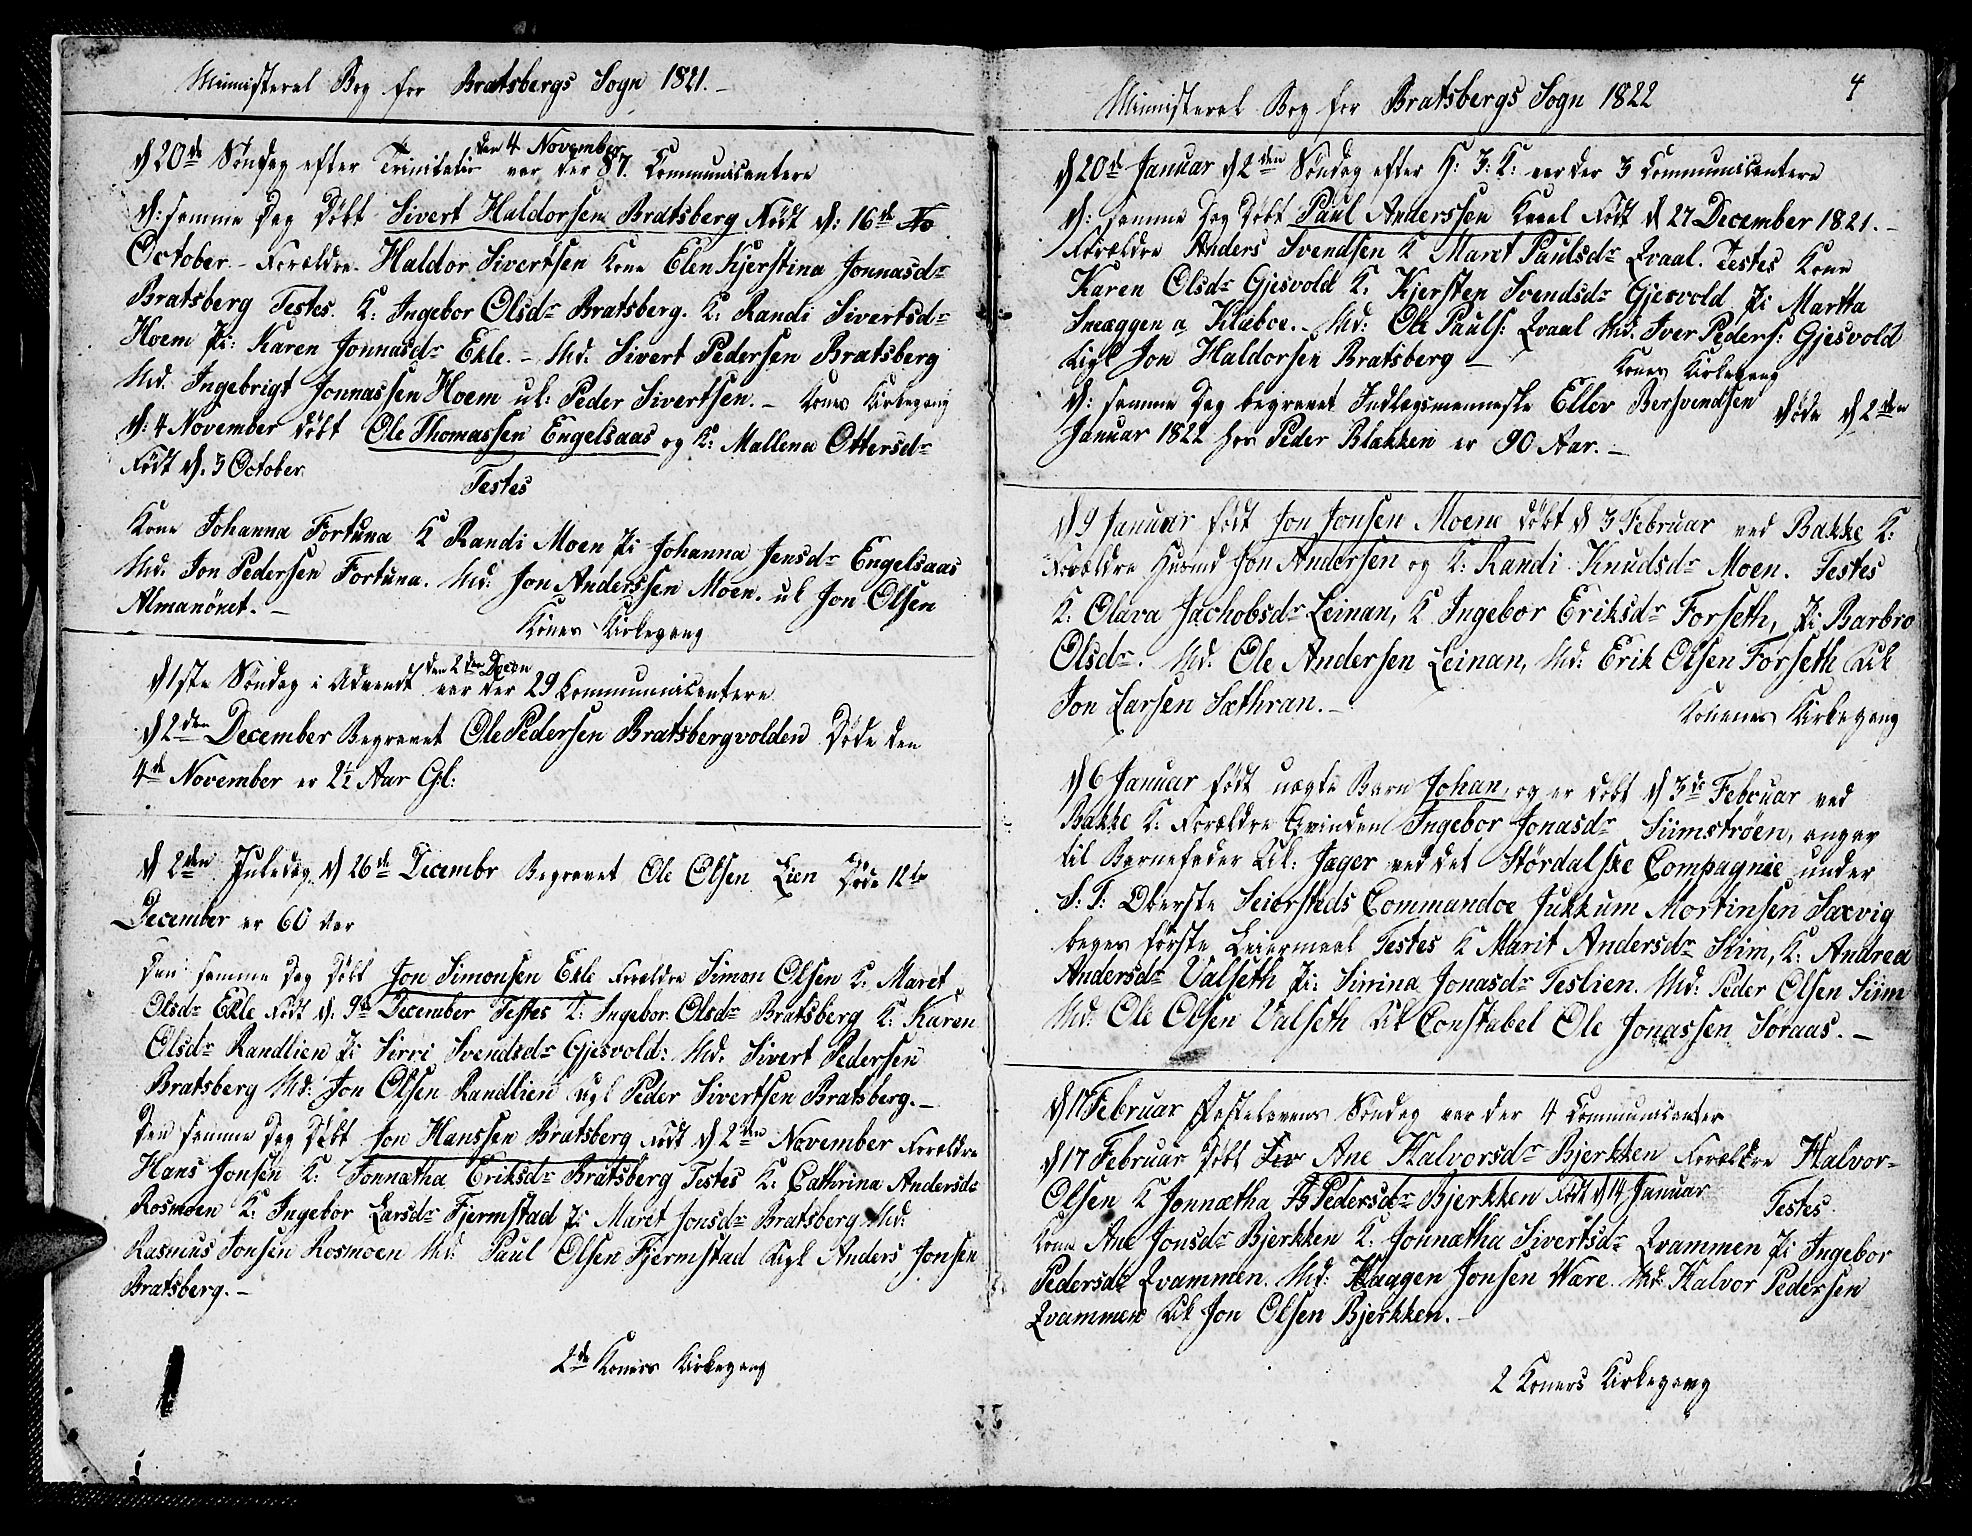 Ministeral Bog for Bratsbergs Sogn 1821.-
d 20de Søndag efter Trinitatis den 4 November var der 87. Communicantere
d: samme Dag Døbt Sivert Haldorsen Bratsberg Født d: 16de
October.- Forældre. Haldor Sivertsen Kone Elen Kjerstina Jonnasdr
Bratsberg Testes. K: Ingebor Olsdr Bratsberg. K: Randi Sivertsdr
Hoem Pi: Karen Jonnasdr Ekle.- Md: Sivert Pedersen Bratsberg
Md: Ingebrigt Jonnassen Hoem uk: Peder Sivertsen.- Kones Kirkegang
d: 4 November døbt Ole Thomassen Engelsaas og K: Mallena Ottersdr
Født d. 3 October
Testes
Kone Johanna Fortuna K Randi Moen Pi Johanna Jensdr Engelsaas
Md: Jon Pedersen Fortuna. Md: Jon Anderssen Moen. uk Jon Olsen
Almanönet.-
Kones Kirkegang
d 1ste Søndag i Advendt den 2den Decbn var der 29 Communicantere
d 2den December Begravet Ole Pedersen Bratsbergvolden Døde den
4de November er 2½ Aar Gl:
d 2den Juledag d 26de Decembr Begravet Ole Olsen Lien Døde 12te
December er 60 Aar
den samme Dag Døbt Jon Simonsen Ekle Forældre Simon Olsen K: Maret
Olsdr Ekle Født d: 9de December Testes K: Ingebor Olsdr Bratsberg K: Karen
Olsdr Randlien Pi Sirri Svendsdr Gjesvold: Md. Sivert Pedersen
Bratsberg Md: Jon Olsen Randlien ugl Peder Sivertsen Bratsberg.-
Den samme Dag Døbt Jon Hanssen Bratsberg Født d 2den November Forældre
Hans Jonsen K: Jonnatha Eriksdr Bratsberg Testes K: Cathrina Andersdr
Rosmoen K: Ingebor Larsdr Fjermstad Pi Maret Jonsdr Bratsberg Md:
Rasmus Jonsen Rosmoen Md: Paul Olsen Fjermstad Ugl Anders Jonsen
Bratsberg.-
2de Koners Kirkegang
Ministeral Bog for Bratsbergs Sogn 1822
4
d 20de Januar d 2den Søndag efter H: 3: K: var der 3 Communicantere
d: samme Dag Døbt Paul Anderssen Født d 27 December 1821.-
Forældre Anders Svendsen K Maret Paulsdr Qvaal. Testes Kone
Karen Olsdr Gjesvold K. Kjersten Svendsdr Gjesvold Pi Martta
a Klæboe.- Md: Ole Pauls: Qvaal Md. Iver Peders: Gjesvold
Ugl Jon Haldorsen Bratsberg -
Kones Kirkegang
d: samme Dag begravet Indlagsmenneske Ellev Bersvendsen Døde d 2den
Januar 1822 hos Peder Blakken er 90 Aar.-
d 9 Januar født Jon Jonsen Moene døbt d 3 Februar ved Bakke K:
Forældre Husmd Jon Andersen og K: Randi Knudsdr Moen. Testes
K: Olava Jachobsdr Leinan, K Ingebor Eriksdr Forseth, Pi Barbro
Olsdr. Md: Ole Andersen Leinan, Md: Erik Olsen Forseth Uk
Jon Larsen Sæthran.-
Konenes Kirkegang
d 6 Januar født uægte Barn Johan, og er døbt d 3de Februar ved
Bakke K: Forældre Qvinden Ingebor Jonasdr Siimstrøen, angav
til Barnefader Uk: Jager ved det Stördalske Compagnie under
S: T: Oberste Seiersteds Commandoe Jukkum Mortinsen Saxvig
begges første Leiermaal Testes K Marit Andersdr Siim, K: Andrea
Andersdr Valseth Pi: Sirrina Jonasdr Teslien. Md: Peder Olsen Siim
Md: Ole Olsen Valseth Uk Constabel Ole Jonassen Soraas.-
d 17 Februar Fastelavens Søndag var der 4 Communicanter
d 17 Februar Døbt Ane Halvorsdr Bjerkken Forældre Halvor
Olsen K Jonnætha Pedersdr Bjerkken Født d 14 Januar Testes
Kone Ane Jonsdr Bjerkken K: Jonnætha Sivertsdr Qvammen Pi Ingebor
Pedersdr Qvammen. Md: Haggen Jonsen Ware. Md: Halvor Pedersen
Qvammen Uk Jon Olsen Bjerkken.-
2 Koners Kirkegang